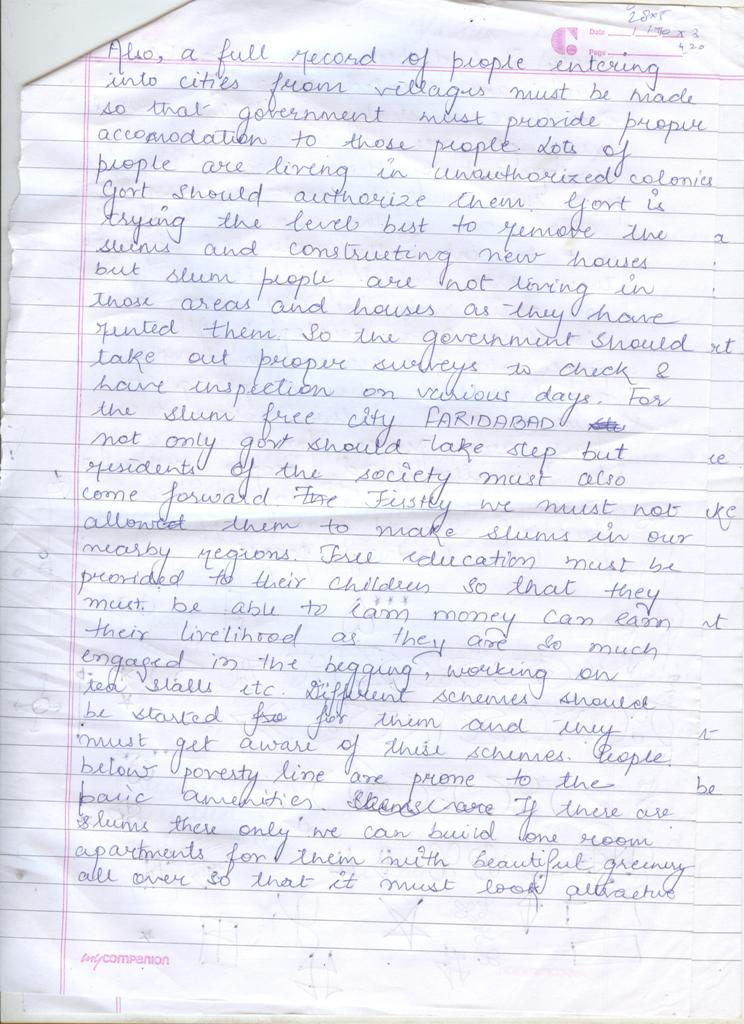 28x5
Date 170 x 3
Page 420
Also, a full record of people entering
into cities from villages must be made
so that government must provide proper
accomodation to those people. Lots of
people are living in unauthorized colonies
Govt should authorize them. Govt is
trying the level best to remove the
slums and constructing new houses
but slum people are not living in
those areas and houses as they have
rented them. So the government should
take out proper surveys to check &
have inspection on various days. For
the slum free city FARIDABAD
not only govt should take step but
residents of the society must also
come forward. The Firstly we must not
allowed them to make slums in our
nearby regions. Free education must be
provided to their children so that they
must be able to earn money can earn
their livelihood as they are so much
engaged in the begging, working on
tea stalls etc. Different schemes should
be started for them and they
must get aware of these schemes. People
below poverty line are prone to the
basic amenities. If there are
slums there only we can build one room
apartments for them with beautiful greenery
all over so that it must look attractive
mycompanion